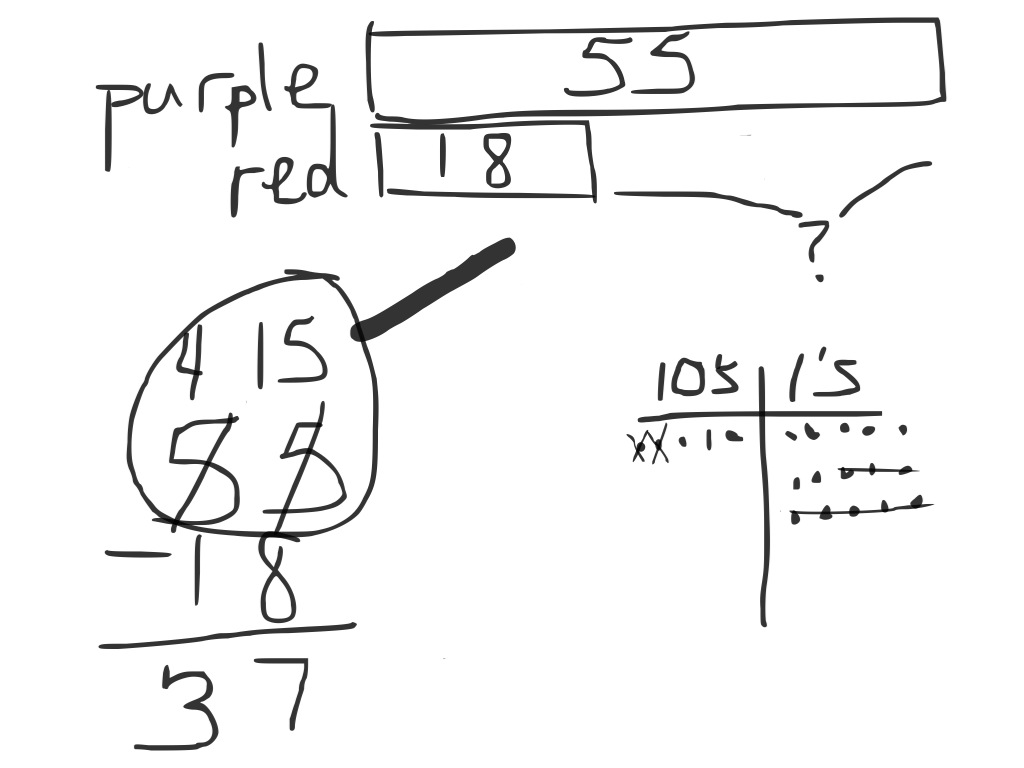 purple 55
red 18
?
4 15
5 5
- 1 8
3 7
10s 1's